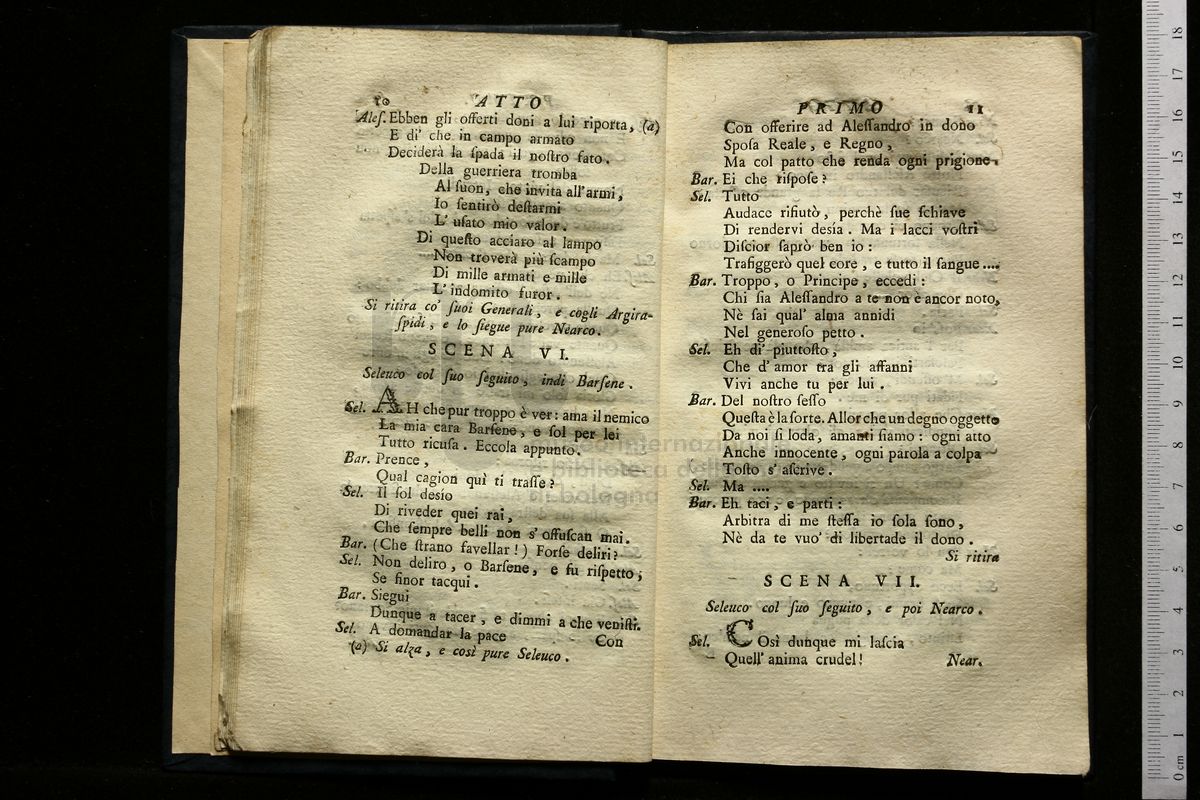 10 ATTO
Aleſ. Ebben gli offerti doni a lui riporta, (a)
E di' che in campo armato
Deciderà la ſpada il noſtro fato.
Della guerriera tromba
Al ſuon, che invita all'armi,
Io ſentirò deſtarmi
L' uſato mio valor.
Di queſto acciaro al lampo
Non troverà più ſcampo
Di mille armati e mille
L' indomito furor.
Si ritira co' ſuoi Generali, e cogli Argira-
ſpidi, e lo ſiegue pure Nearco.
SCENA VI.
Seleuco col ſuo ſeguito, indi Barſene.
Sel. AH che pur troppo è ver: ama il nemico
La mia cara Barſene, e ſol per lei
Tutto ricuſa. Eccola appunto.
Bar. Prence,
Qual cagion quì ti traſſe?
Sel. Il ſol desío
Di riveder quei rai,
Che ſempre belli non s' offuſcan mai.
Bar. (Che ſtrano favellar!) Forſe deliri?
Sel. Non deliro, o Barſene, e fu riſpetto;
Se finor tacqui.
Bar. Siegui
Dunque a tacer, e dimmi a che veniſti.
Sel. A domandar la pace
Con
(a) Si alza, e così pure Seleuco.
PRIMO 11
Con offerire ad Aleſſandro in dono
Spoſa Reale, e Regno,
Ma col patto che renda ogni prigione.
Bar. Ei che riſpoſe?
Sel. Tutto
Audace rifiutò, perchè ſue ſchiave
Di rendervi desía. Ma i lacci voſtri
Diſcior ſaprò ben io:
Trafiggerò quel core, e tutto il ſangue....
Bar. Troppo, o Principe, eccedi:
Chi ſia Aleſſandro a te non è ancor noto,
Nè ſai qual' alma annidi
Nel generoſo petto.
Sel. Eh di' piuttoſto,
Che d' amor tra gli affanni
Vivi anche tu per lui.
Bar. Del noſtro ſeſſo
Queſta è la ſorte. Allor che un degno oggetto
Da noi ſi loda, amanti ſiamo: ogni atto
Anche innocente, ogni parola a colpa
Toſto s' aſcrive.
Sel. Ma ....
Bar. Eh taci, e parti:
Arbitra di me ſteſſa io ſola ſono,
Nè da te vuo' di libertade il dono.
Si ritira
SCENA VII.
Seleuco col ſuo ſeguito, e poi Nearco.
Sel. COsì dunque mi laſcia
Quell' anima crudel!
Near.
museo internazionale
e biblioteca della
di bologna
0 cm 1 2 3 4 5 6 7 8 9 10 11 12 13 14 15 16 17 18